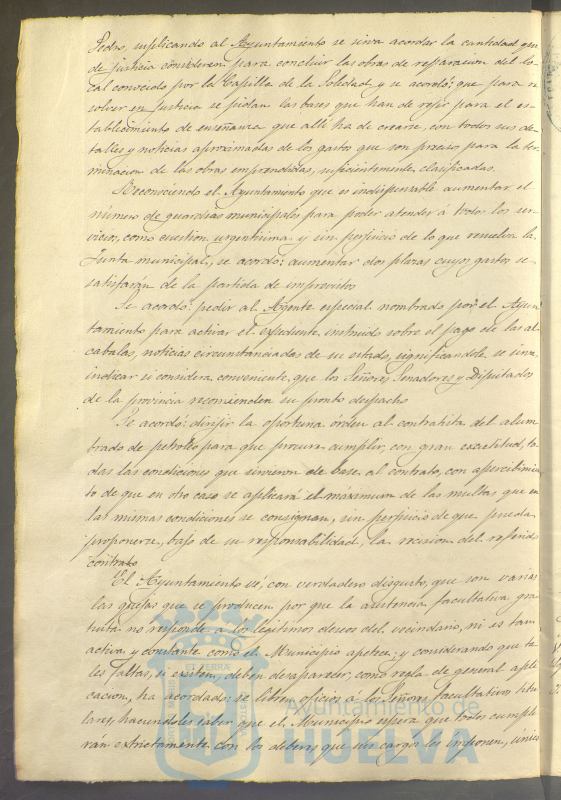 Pedro, suplicando al Ayuntamiento se sirva acordar la cantidad que
de justicia consideren para concluir las obras de reparacion del lo-
cal conocido por la Capilla de la Soledad y se acordó: que para re
solver en justicia se pidan las bases que han de regir para el es-
tablecimiento de enseñanza que alli ha de crearse, con todos sus de-
talles y noticias aproximadas de los gastos que son precisos para la ter-
minacion de las obras emprendidas, suficientemente clasificadas.
Reconociendo el Ayuntamiento que es indispensable aumentar el
número de guardias municipales para poder atender á todos los ser-
vicios, como cuestion urgentisima y sin perjuicio de lo que resuelva la
Junta municipal, se acordó: aumentar dos plazas cuyos gastos se
satisfarán de la partida de imprevistos
Se acordó: pedir al Agente especial nombrado por el Ayun-
tamiento para activar el expediente instruido sobre el pago de las al-
cabalas, noticias circunstanciadas de su estado, significandole se sirva
indicar si considera conveniente, que los Señores Senadores y Diputados
de la provincia recomienden su pronto despacho
Se acordó: dirijir la oportuna órden al contratista del alum
brado de petróleo para que procure cumplir, con gran exactitud, to
das las condiciones que sirvieron de base al contrato, con apercibimien
to de que en otro caso se aplicará el máximum de las multas que en
las mismas condiciones se consignan, sin perjuicio de que pueda
proponerse, bajo de su responsabilidad, la recision del referido
contrato
El Ayuntamiento ve, con verdadero disgusto, que son varias
las quejas que se producen por que la asistencia facultativa gra
tuita no responde a los legitimos deseos del vecindario, ni es tan
activa y constante como el Municipio apetece; y considerando que ta
les faltas, si existen, deben desaparecer, como regla de general apli
cacion, ha acordado: se libren oficios á los Señores facultativos titu
lares, haciendoles saber que el Municipio espera que todos cumpli
rán extrictamente con los deberes que sus cargos les imponen,
Ayuntamiento de
HUELVA